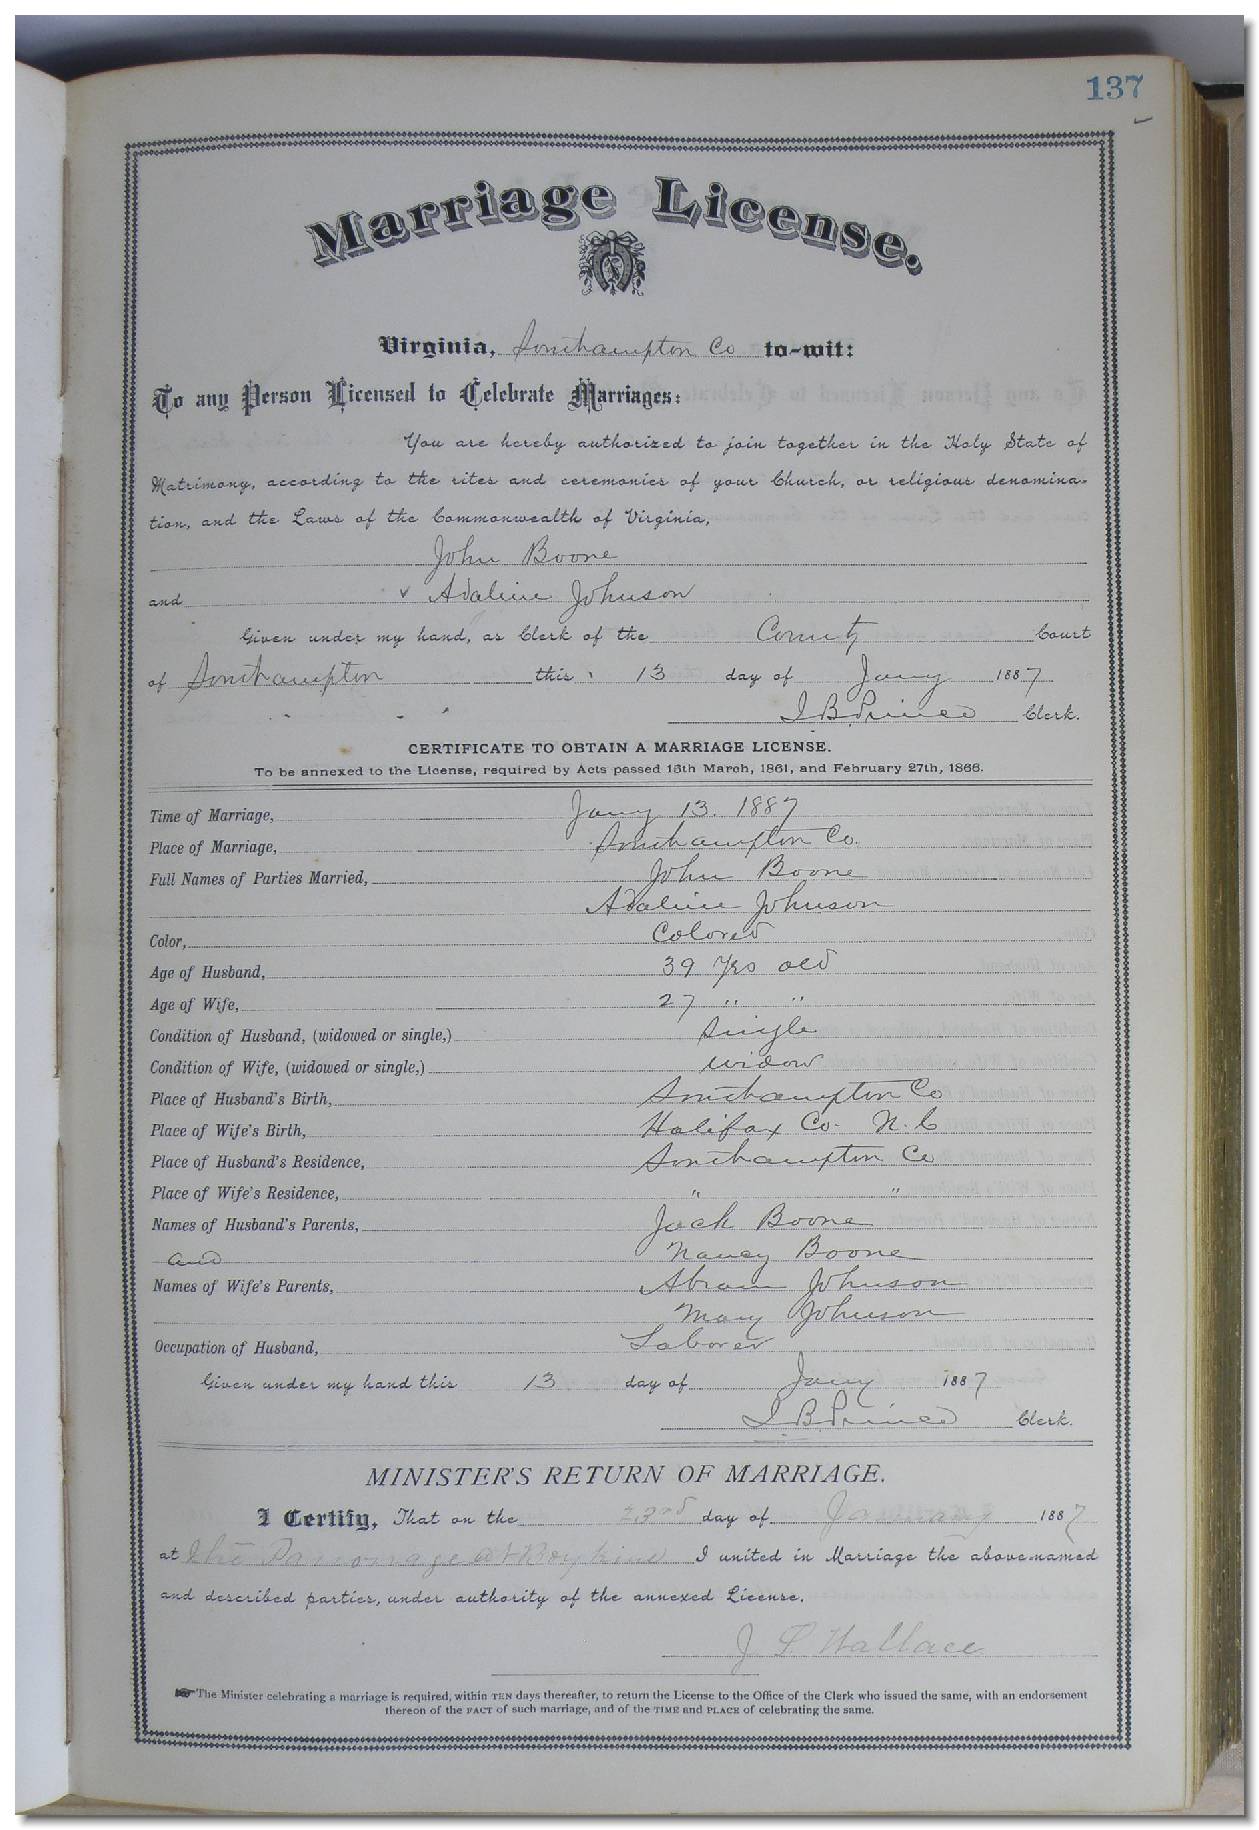 137
Marriage License.
Virginia, Southampton Co to-wit:
To any Person Licensed to Celebrate Marriages:
You are hereby authorized to join together in the Holy State of
Matrimony, according to the rites and ceremonies of your Church, or religious denomina-
tion, and the Laws of the Commonwealth of Virginia,
John Boone
and Adaline Johnson
Given under my hand, as Clerk of the County Court
of Southampton this 13 day of Jany 1887
I B Prince Clerk.
CERTIFICATE TO OBTAIN A MARRIAGE LICENSE.
To be annexed to the License, required by Acts passed 15th March, 1861, and February 27th, 1866.
Time of Marriage, Jany 13. 1887
Place of Marriage, Southampton Co.
Full Names of Parties Married, John Boone
Adaline Johnson
Color, Colored
Age of Husband, 39 Yrs old
Age of Wife, 27 " "
Condition of Husband, (widowed or single,) Single
Condition of Wife, (widowed or single,) widow
Place of Husband's Birth, Southampton Co
Place of Wife's Birth, Halifax Co. N.C
Place of Husband's Residence, Southampton Co
Place of Wife's Residence, " "
Names of Husband's Parents, Jack Boone
and Nancy Boone
Names of Wife's Parents, Abram Johnson
Mary Johnson
Occupation of Husband, Laborer
Given under my hand this 13 day of Jany 1887
I B Prince Clerk.
MINISTER'S RETURN OF MARRIAGE.
I Certify, That on the 23rd day of January 1887
at the Parsonage at Boykins I united in Marriage the above-named
and described parties, under authority of the annexed License.
J L Wallace
The Minister celebrating a marriage is required, within TEN days thereafter, to return the License to the Office of the Clerk who issued the same, with an endorsement
thereon of the FACT of such marriage, and of the TIME and PLACE of celebrating the same.